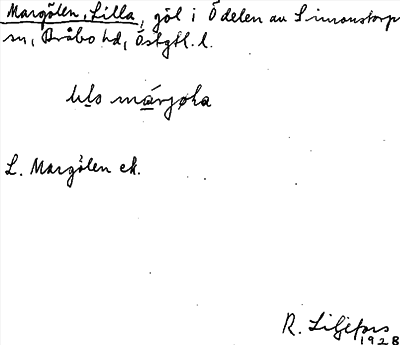 Margölen, Lilla, göl i Ö delen av Simonstorp
sn, Bråbo hd, Östgtl. l.
lıls márjøka
L. Margölen ek.
R. Liljefors
1928